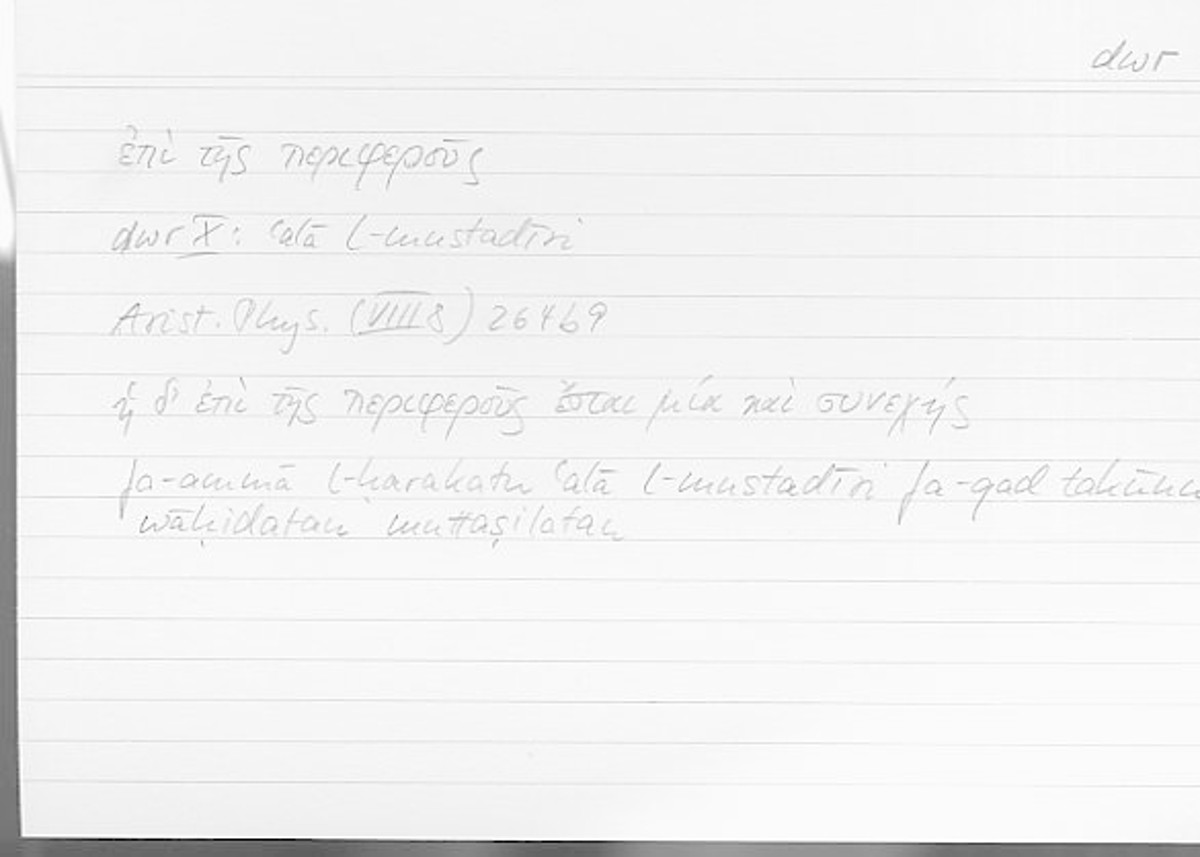 dwr
ἐπὶ τῆς περιφεροῦς
dwr X: ʿalā l-mustadīri
Arist. Phys. (VIII 8) 264b9
ἡ δ' ἐπὶ τῆς περιφεροῦς ἔσται μία καὶ συνεχής
fa-ammā l-ḥarakatu ʿalā l-mustadīri fa-qad takūnu
wāḥidatan muttaṣilatan